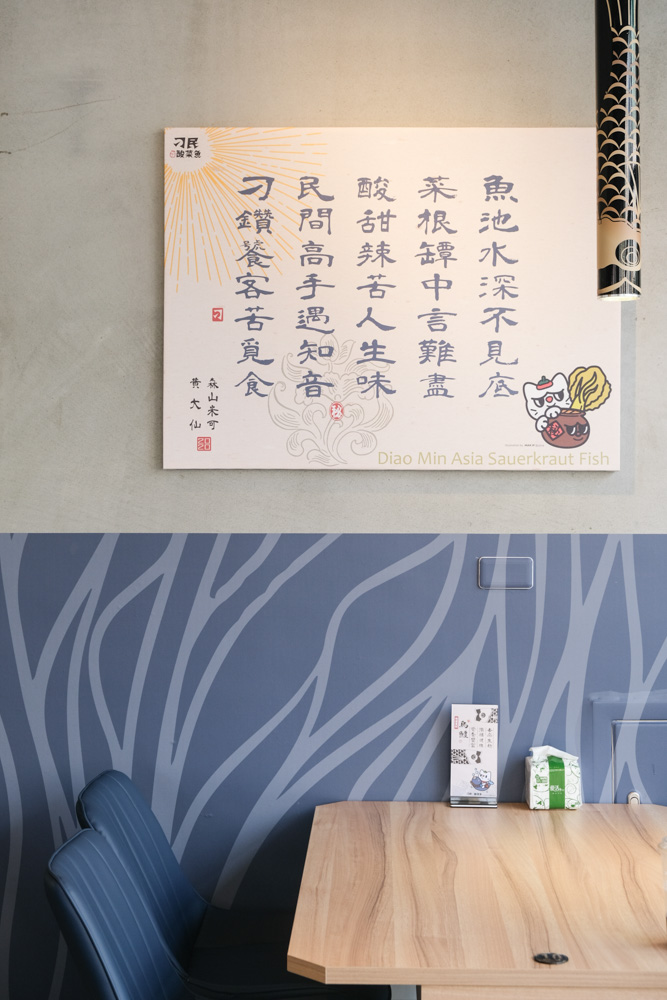 刁民
酸菜魚
魚池水深不見底
菜根罈中言難盡
酸甜辣苦人生味
民間高手遇知音
刁鑽饕客苦覓食
黃大仙
Diao Min Asia Sauerkraut Fish